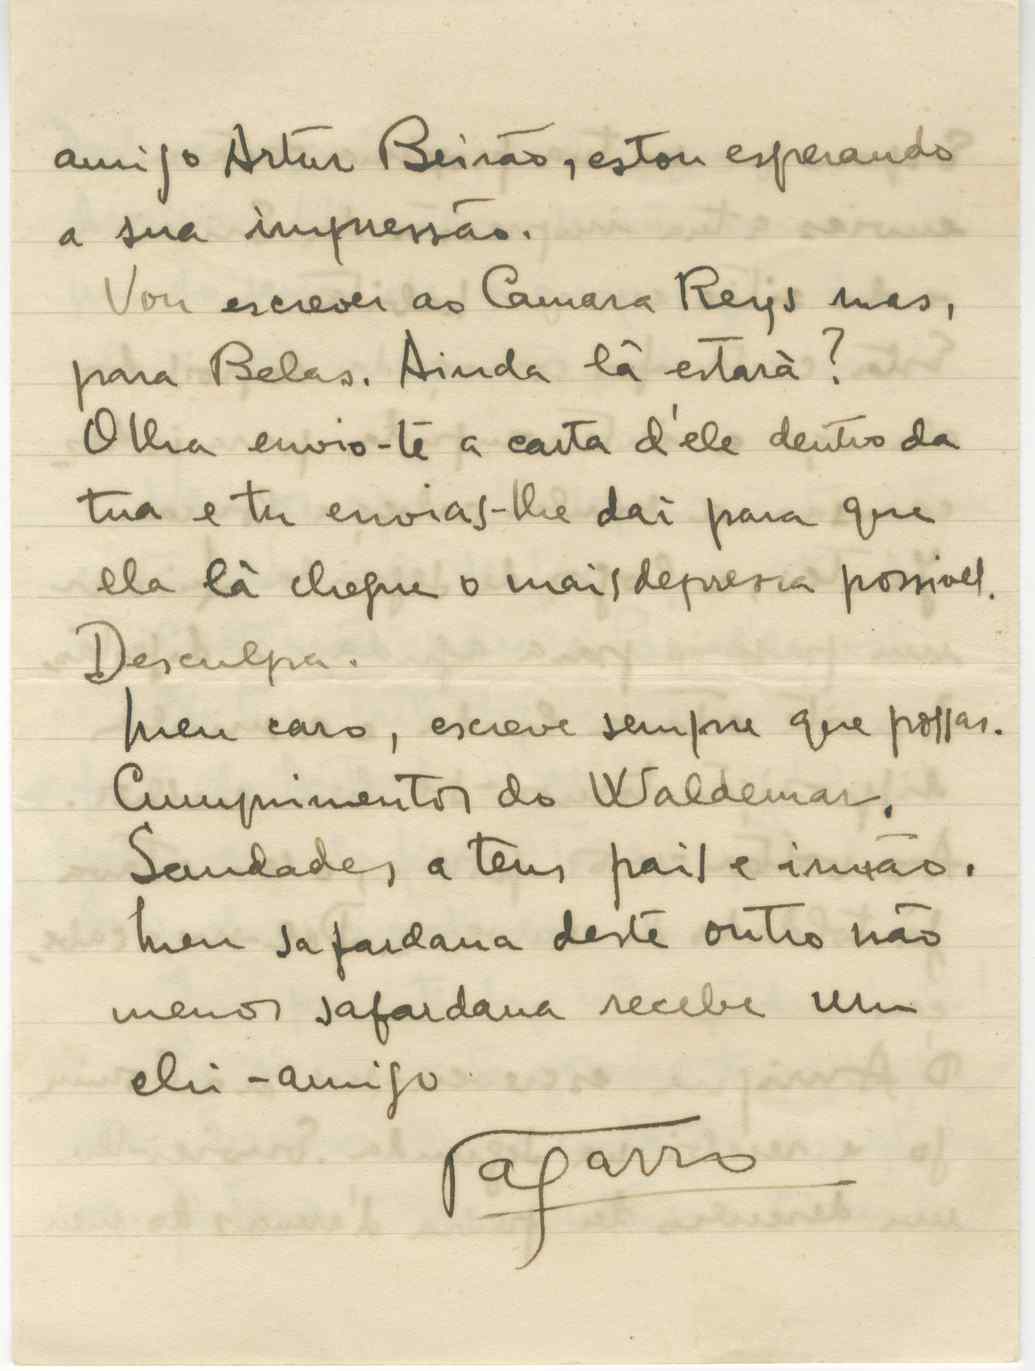 amigo Artur Beirão, estou esperando
a sua impressão.
Vou escrever ao Camara Reys mas,
para Belas. Ainda lá estarà?
Olha envio-te a carta d'ele dentro da
tua e tu envias-lhe daì para que
ela là chegue o mais depressa possivel.
Desculpa.
Meu caro, escreve sempre que possas.
Cumprimentos do Waldemar.
Saudades a teus pais e irmão.
Meu safardana deste outro não
menos safardana recebe um
chi-amigo
Tagarro